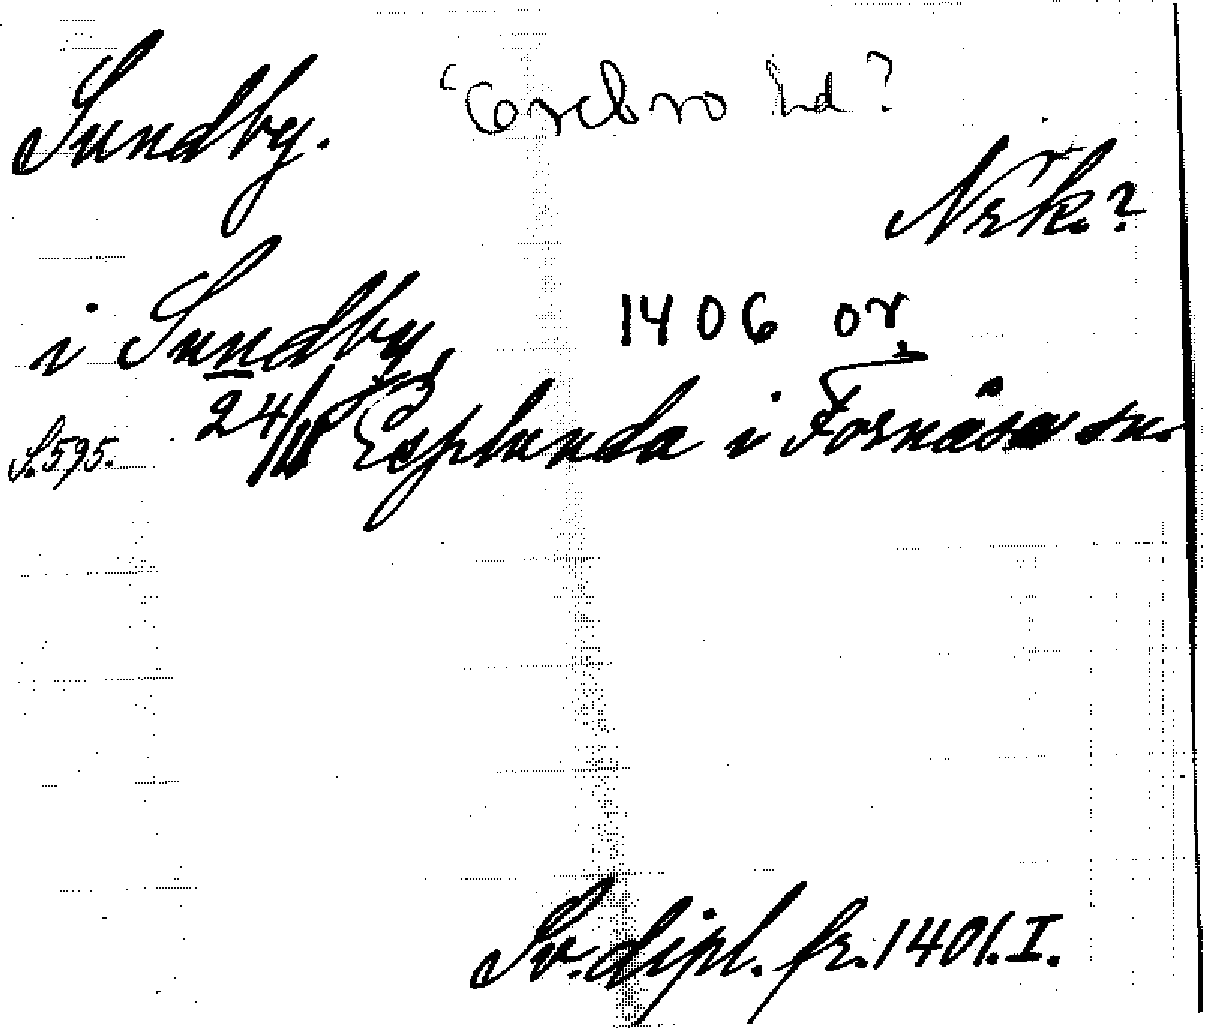 Sundby. Örebro hd?
Nrk.?
i Sundby, 1406 or.
24/10 Esplunda i Fornåsa sn.
S. 595.
Sv. dipl. fr. 1401. I.